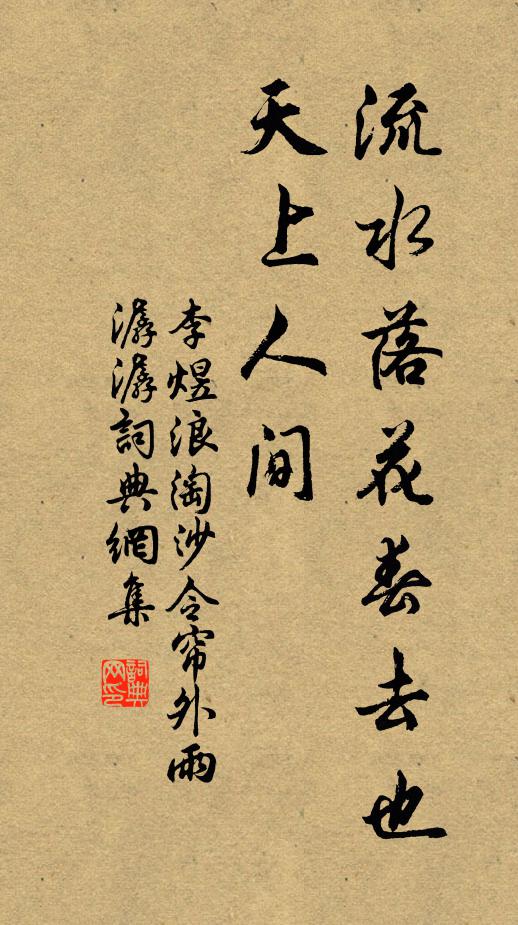 流水落花春去也
天上人间
李煜浪淘沙令帘外雨
潺潺詞典網集
詞典
网印